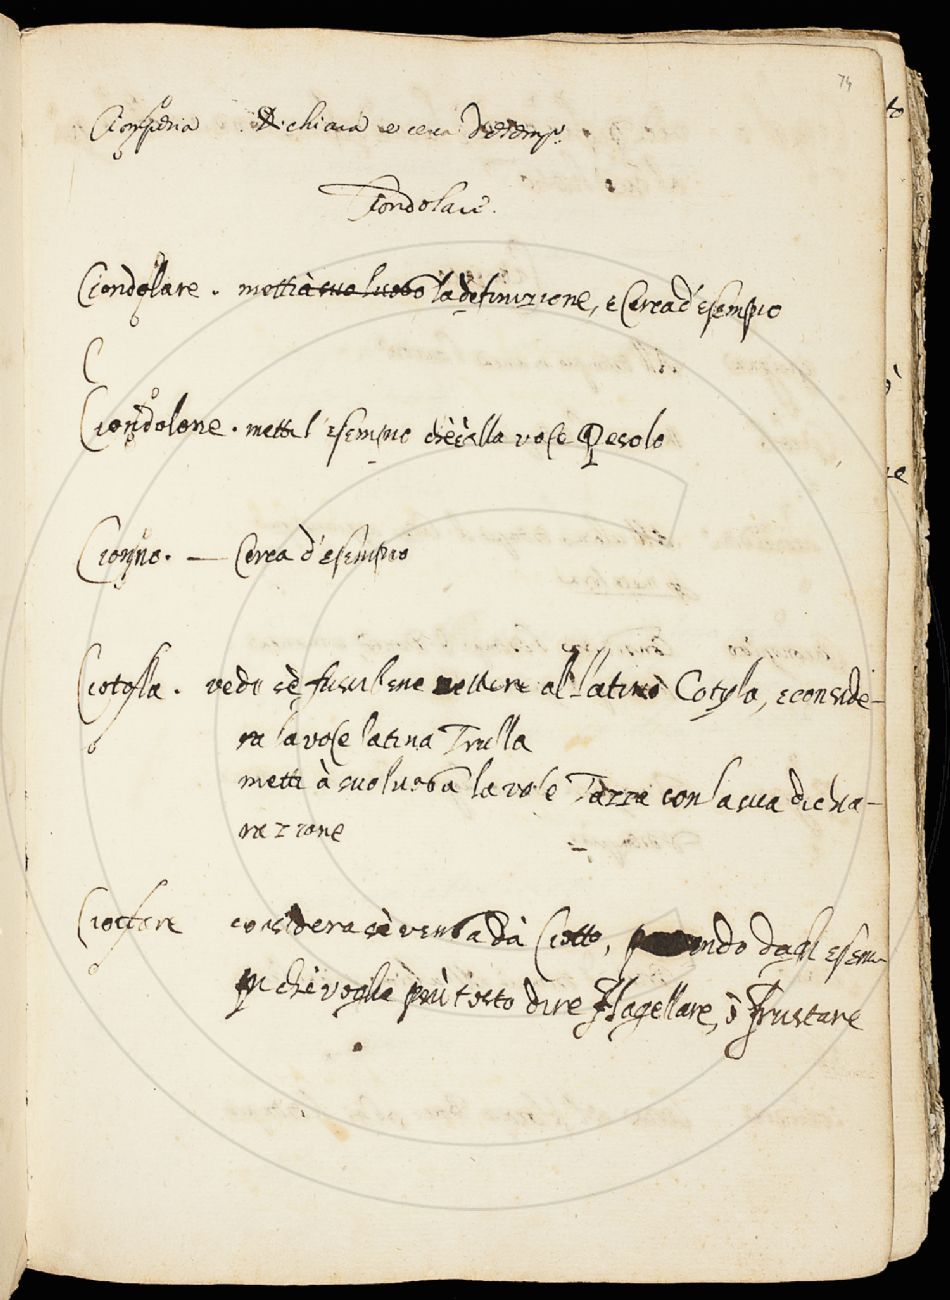 74
Dichiara e cerca d'esemp.
Ciondolare.
Ciondolare. metti à suo luogo la definizione, e Cerca d'esempio
C
Ciondolone. metti l'esempio ch'è alla voce Pesolo
Cionno. — Cerca d'esempio
Ciotola. vedi sè fusse bene mettere al latino Cotyla, e conside-
ra la voce latina Trulla
metti à suo luogo la voce Tazza con la sua dichia-
razzione
Ciottare considera se venga dà Ciotto, parendo dagl' esem-
pi che voglia più tosto dire Flagellare, ò Frustare